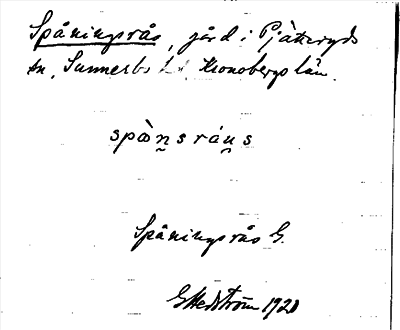 Spåningsrås, gård i Pjätteryds
sn, Sunnerbo hd, Kronobergs län.
spὰn̰sráṵs
Spåningsrås G.
GHedström 1920